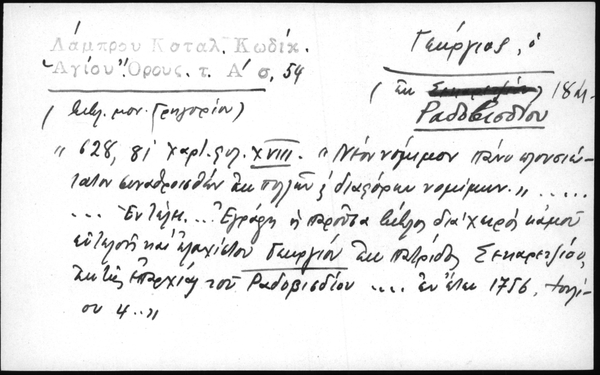 Λάμπρου Καταλ. Κωδίκ.
"Αγίου" Όρους. τ. Α' σ. 54
Γεώργιος, ὁ
(ἐκ Σεκαρετζιάς) 18 αι.
Ραδοβισδίου
(Βιβλ. μον. Γρηγορίου)
" 628, 81 χαρτ. φυλ. XVIII. "Νέον νόμιμον πάνυ πλουσιώ-
τατον συναθροισθὲν ἐκ πολλῶν ἑ διαφόρων νομίμων." .....
... Ἐν τέλει ... Ἐγράφη ἡ παροῦσα βίβλος διὰ χειρὸς κἀμοῦ
εὐτελοῦς καὶ ἐλαχίστου Γεωργίου ἐκ πατρίδος Σεκαρετζιάς,
ἐκ τῆς ἐπαρχίας τοῦ Ραδοβισδίου .... ἐν ἔτει 1756, Ἰουλί-
ου 4.."